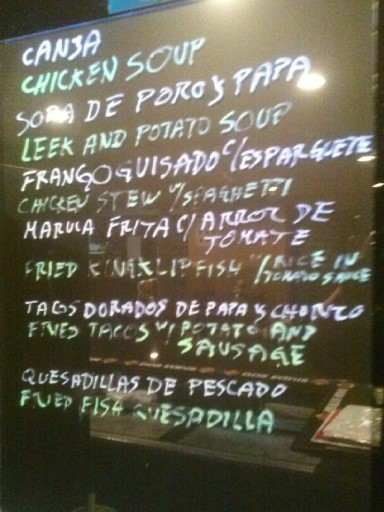 CANJA
CHICKEN SOUP
SOPA DE PORO Y PAPA
LEEK AND POTATO SOUP
FRANGO GUISADO C/ ESPARGUETE
CHICKEN STEW W/ SPAGHETTI
MARUCA FRITA C/ ARROZ DE
TOMATE
FRIED KINGKLIP FISH W/ RICE IN
TOMATO SAUCE
TACOS DORADOS DE PAPA Y CHORIZO
FRIED TACOS W/ POTATO AND
SAUSAGE
QUESADILLAS DE PESCADO
FRIED FISH QUESADILLA